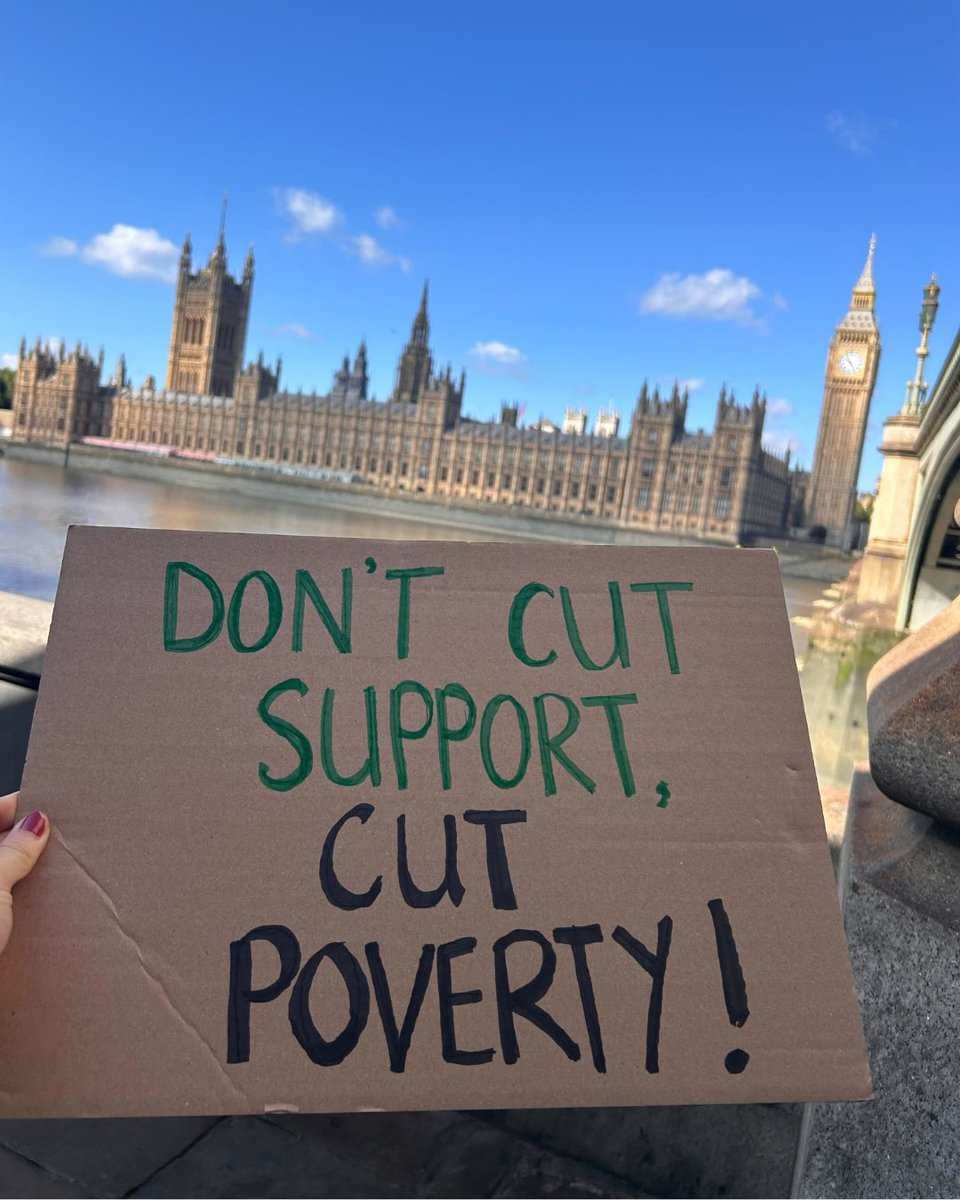 DON'T CUT
SUPPORT,
CUT
POVERTY!